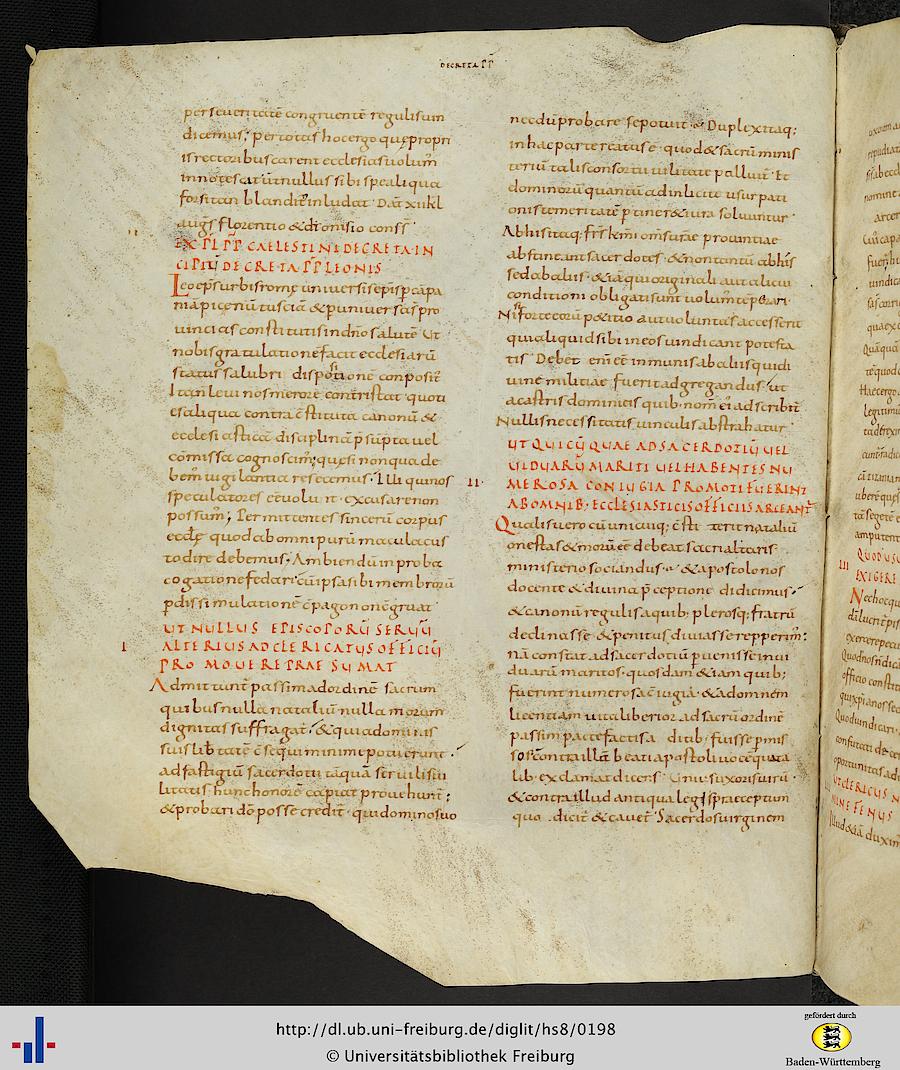 DECRETA PP
perseveritatē congruentē regulis um
dicemus; per totas hoc ergo quę propri
is rectoribus carent ecclesias uolum̄
innotescat ut nullus sibi spe aliqua
forsitan blandit̄ inludat. Dat̄ xii kl
augs̄ florentio & dionisio conss̄
EXPL PP CAELESTINI DECRETA IN
CIPIT̄ DECRETA PP LEONIS
Leo eps urbis romę uniuersis epis̄ p cāpa
niā picenū tusciā & p uniuersas pro
uincias constitutis in dn̄o salutē Ut
nobis gratulationē facit ecclesiarū
status salubri dispositione conposit̄
Ita n̄ leui nos merore contristat quoti
es aliqua contra c̄stituta canonū &
ecclesiasticā disciplinā p̄sūpta uel
cōmissa cognoscim;
speculatores ēē uoluit. excusare non
possum; Permittentes sincerū corpus
eccl̄ę quod ab omni purū macula cus
todire debemus. Ambiendū in proba
cogatione fedari cū ipsa sibi membrorū
p dissimulationē
UT NULLUS EPISCOPORŪ SERUŪ
I ALTERIUS AD CLERICATUS OFFICIŪ
PROMOUERE PRAESUMAT
Admittunt̄ passim ad ordinē sacrum
quibus nulla natalium nulla morum
dignitas suffragat̄. & qui a dominis
suis libtatē c̄sequi minime potuerunt.
ad fastigiū sacerdotii tāquā seruilis ui
litatis hunc honorē capiat prouehunt̄;
& probari dō posse credit̄. qui domino suo
necdū probare se potuit. Duplex itaq;
in hac parte reatus ē. quod & sacrū minis
teriū talis consortii uilitate polluit̄. Et
dominorū quantū ad inlicite usurpati
onis temeritatē ptinet & iura soluuntur.
Ab his itaq; fr̄s kmi om̄s ur̄ae prouintiae
abstineant sacerdotes. & non tantū ab his
sed ab aliis. & iā qui originali aut alicui
conditioni obligati sunt uolum̄ tēperari
Nisi forte eorū petitio aut uoluntas accesserit
qui aliquid sibi in eos uindicant potesta
tis Debet eni ēē inmunis ab aliis qui di
uine militiae fuerit adgregandus. ut
a castris dominicis quib nom̄ ei adscribit̄
Nullis necessitatis uinculis abstrahatur
UT QUICŪQUAE AD SACERDOTIŪ UEL
UIDUARŪ MARITI UEL HABENTES NU
II MEROSA CONIUGIA PROMOTI FUERINT
AB OMNIB; ECCLESIASTICIS OFFICIIS ARCEANT̄
Qualis uero cui unicuiq; c̄stiterit nataliū
onestas & morū ēē debeat sacri altaris
ministerio sociandus. & apostolo nos
docente & diuina pceptione didicimus.
& canonū regulis a quib; plerosq; fratrū
declinasse & penitus diuiasse repperim̄:
nā constat ad sacerdotiū puenisse in ui
duarū maritos. quosdam & iam quib;
fuerint numerosa c̄iugia. & ad omnem
licentiam uita liberior ad sacrū ordinē
passim patefactis aditib; fuisse pmis
sos. contra illā beati apostoli uocē qua ta
lib. exclamat dicens Unius uxoris uirū.
& contra illud antiqua legis praeceptum
quo dicit̄ & cauet̄ Sacerdos uirginem
http://dl.ub.uni-freiburg.de/diglit/hs8/0198
© Universitätsbibliothek Freiburg
gefördert durch
Baden-Württemberg